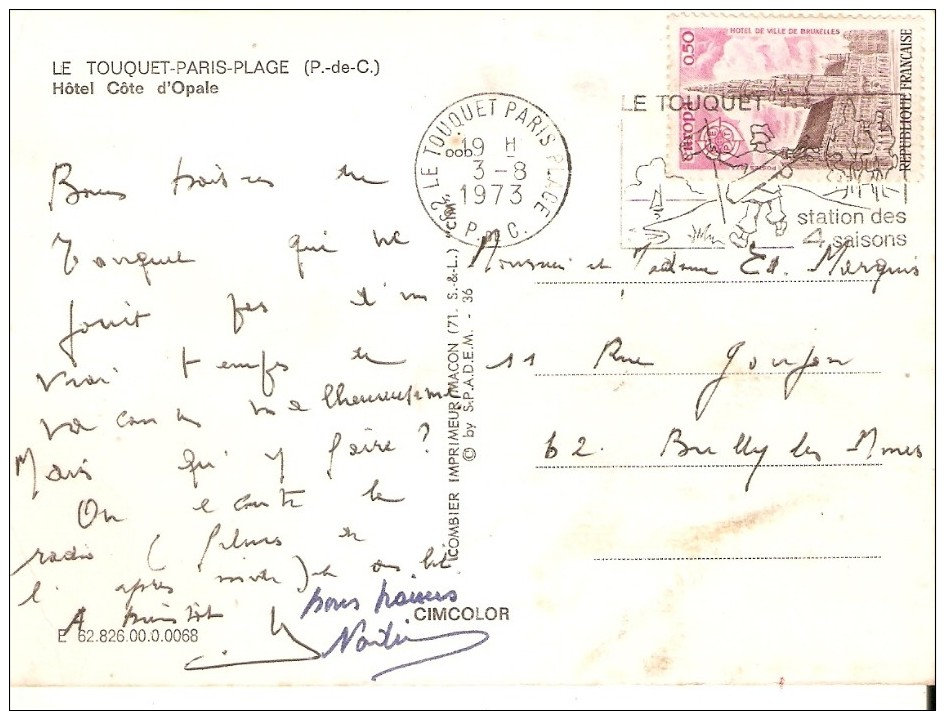 LE TOUQUET-PARIS-PLAGE (P.-de-C.)
Hôtel Côte d'Opale
Bons baisers du
Touquet qui ne
jouit pas d'un
vrai temps de
vacances malheureusement
Mais qu'y faire ?
On écoute la
radio ( films de
l'après midi ) et on lit
A bientôt
bons baisers
E 62.826.00.0.0068
CIMCOLOR
COMBIER IMPRIMEUR MACON (71. S.-&-L.) "CIM"
© by S.P.A.D.E.M. - 36
62 LE TOUQUET PARIS PLAGE
19 H
3 - 8
1973
P. DE C.
LE TOUQUET
station des
4 saisons
HOTEL DE VILLE DE BRUXELLES
0,50
europa
REPUBLIQUE FRANÇAISE
Monsieur et Madame Ed. Merquis
11 Rue Goujon
62. Bully les Mines